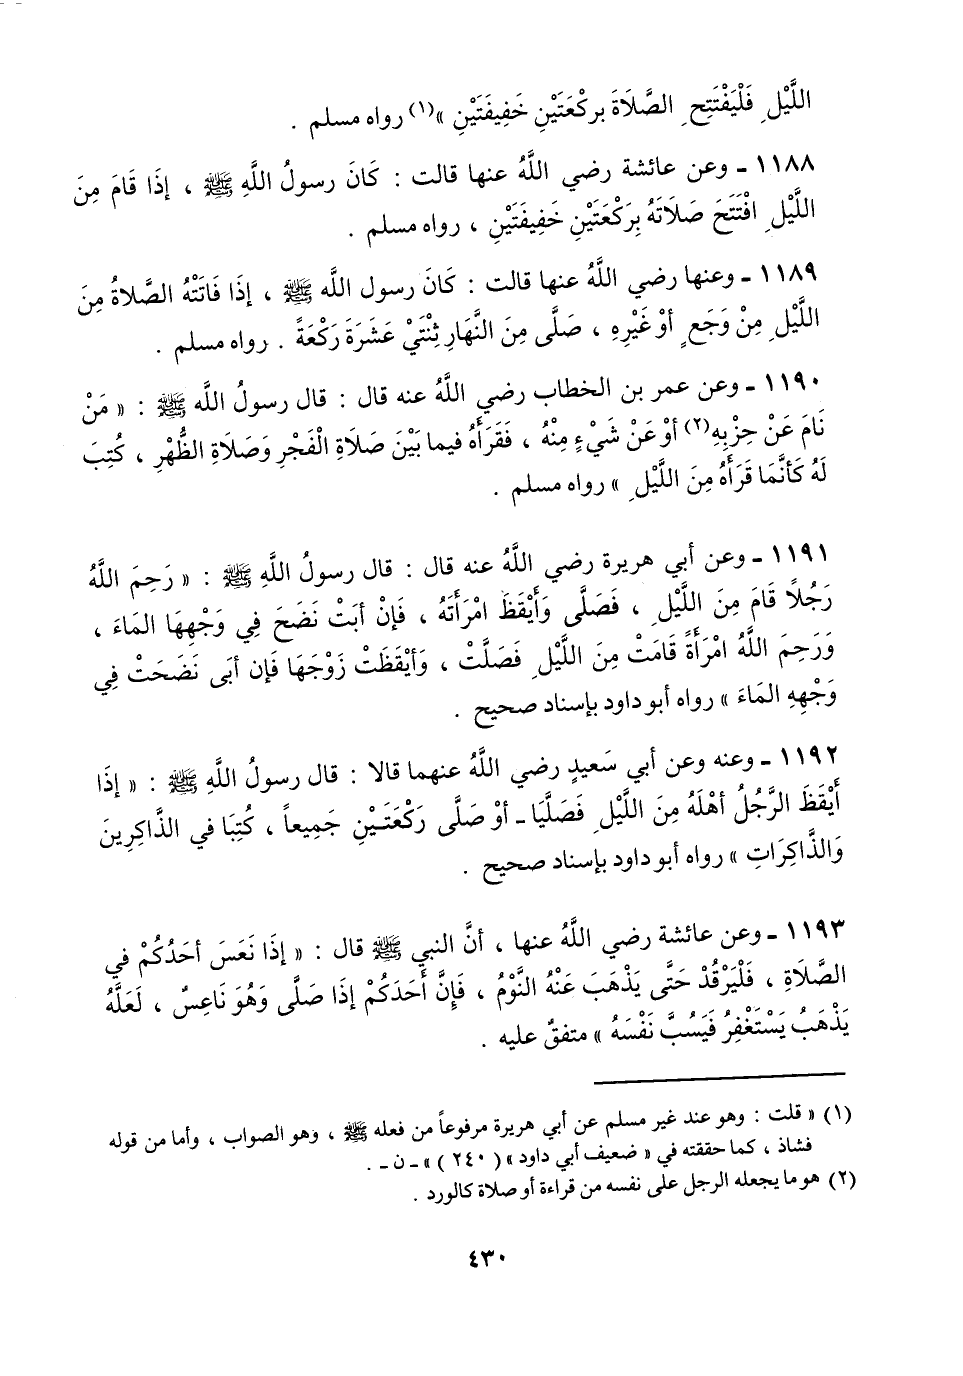 اللَّيْلِ فَلْيَفْتَتِحِ الصَّلَاةَ بِرَكْعَتَيْنِ خَفِيفَتَيْنِ »(١) رواه مسلم .
١١٨٨ ـ وعن عائشة رضي اللَّهُ عنها قالت : كَانَ رسولُ اللَّهِ ﷺ ، إذَا قَامَ مِنَ
اللَّيْلِ افْتَتَحَ صَلَاتَهُ بِرَكْعَتَيْنِ خَفِيفَتَيْنِ ، رواه مسلم .
١١٨٩ ـ وعنها رضي اللَّهُ عنها قالت : كَانَ رسول اللَّه ﷺ ، إذَا فَاتَتْهُ الصَّلاةُ مِنَ
اللَّيْلِ مِنْ وَجَعٍ أوْ غَيْرِهِ ، صَلَّى مِنَ النَّهَارِ ثِنْتَيْ عَشَرَةَ رَكْعَةً . رواه مسلم .
١١٩٠ ـ وعن عمر بن الخطاب رضي اللَّهُ عنه قال : قال رسولُ اللَّه ﷺ : « مَنْ
نَامَ عَنْ حِزْبِهِ(٢) أوْ عَنْ شَيْءٍ مِنْهُ ، فَقَرَأَهُ فيما بَيْنَ صَلَاةِ الْفَجْرِ وَصَلَاةِ الظُّهْرِ ، كُتِبَ
لَهُ كَأنَّمَا قَرَأَهُ مِنَ اللَّيْلِ » رواه مسلم .
١١٩١ ـ وعن أبي هريرة رضي اللَّهُ عنه قال : قال رسولُ اللَّهِ ﷺ : « رَحِمَ اللَّهُ
رَجُلًا قَامَ مِنَ اللَّيْلِ ، فَصَلَّى وَأَيْقَظَ امْرَأَتَهُ ، فَإنْ أبَتْ نَضَحَ فِي وَجْهِهَا المَاءَ ،
وَرَحِمَ اللَّهُ امْرَأَةً قَامَتْ مِنَ اللَّيْلِ فَصَلَّتْ ، وَأيْقَظَتْ زَوْجَهَا فَإن أبَى نَضَحَتْ فِي
وَجْهِهِ المَاءَ » رواه أبو داود بإسناد صحيح .
١١٩٢ ـ وعنه وعن أبي سَعيدٍ رضي اللَّهُ عنهما قالا : قال رسولُ اللَّهِ ﷺ : « إذَا
أَيْقَظَ الرَّجُلُ أهْلَهُ مِنَ اللَّيْلِ فَصَلَّيَا ـ أوْ صَلَّى رَكْعَتَيْنِ جَمِيعاً ، كُتِبَا في الذَّاكِرِينَ
وَالذَّاكِرَاتِ » رواه أبو داود بإسناد صحيح .
١١٩٣ ـ وعن عائشة رضي اللَّهُ عنها ، أنَّ النبي ﷺ قال : « إذَا نَعَسَ أحَدُكُمْ في
الصَّلَاةِ ، فَلْيَرْقُدْ حَتَّى يَذْهَبَ عَنْهُ النَّوْمُ ، فَإنَّ أَحَدَكُمْ إذَا صَلَّى وَهُوَ نَاعِسٌ ، لَعَلَّهُ
يَذْهَبُ يَسْتَغْفِرُ فَيَسُبَّ نَفْسَهُ » متفقٌ عليه .
(١) « قلت : وهو عند غير مسلم عن أبي هريرة مرفوعاً من فعله ﷺ ، وهو الصواب ، وأما من قوله
فشاذ ، كما حققته في « ضعيف أبي داود » ( ٢٤٠ ) » ـ ن ـ .
(٢) هو ما يجعله الرجل على نفسه من قراءة أو صلاة كالورد .
٤٣٠